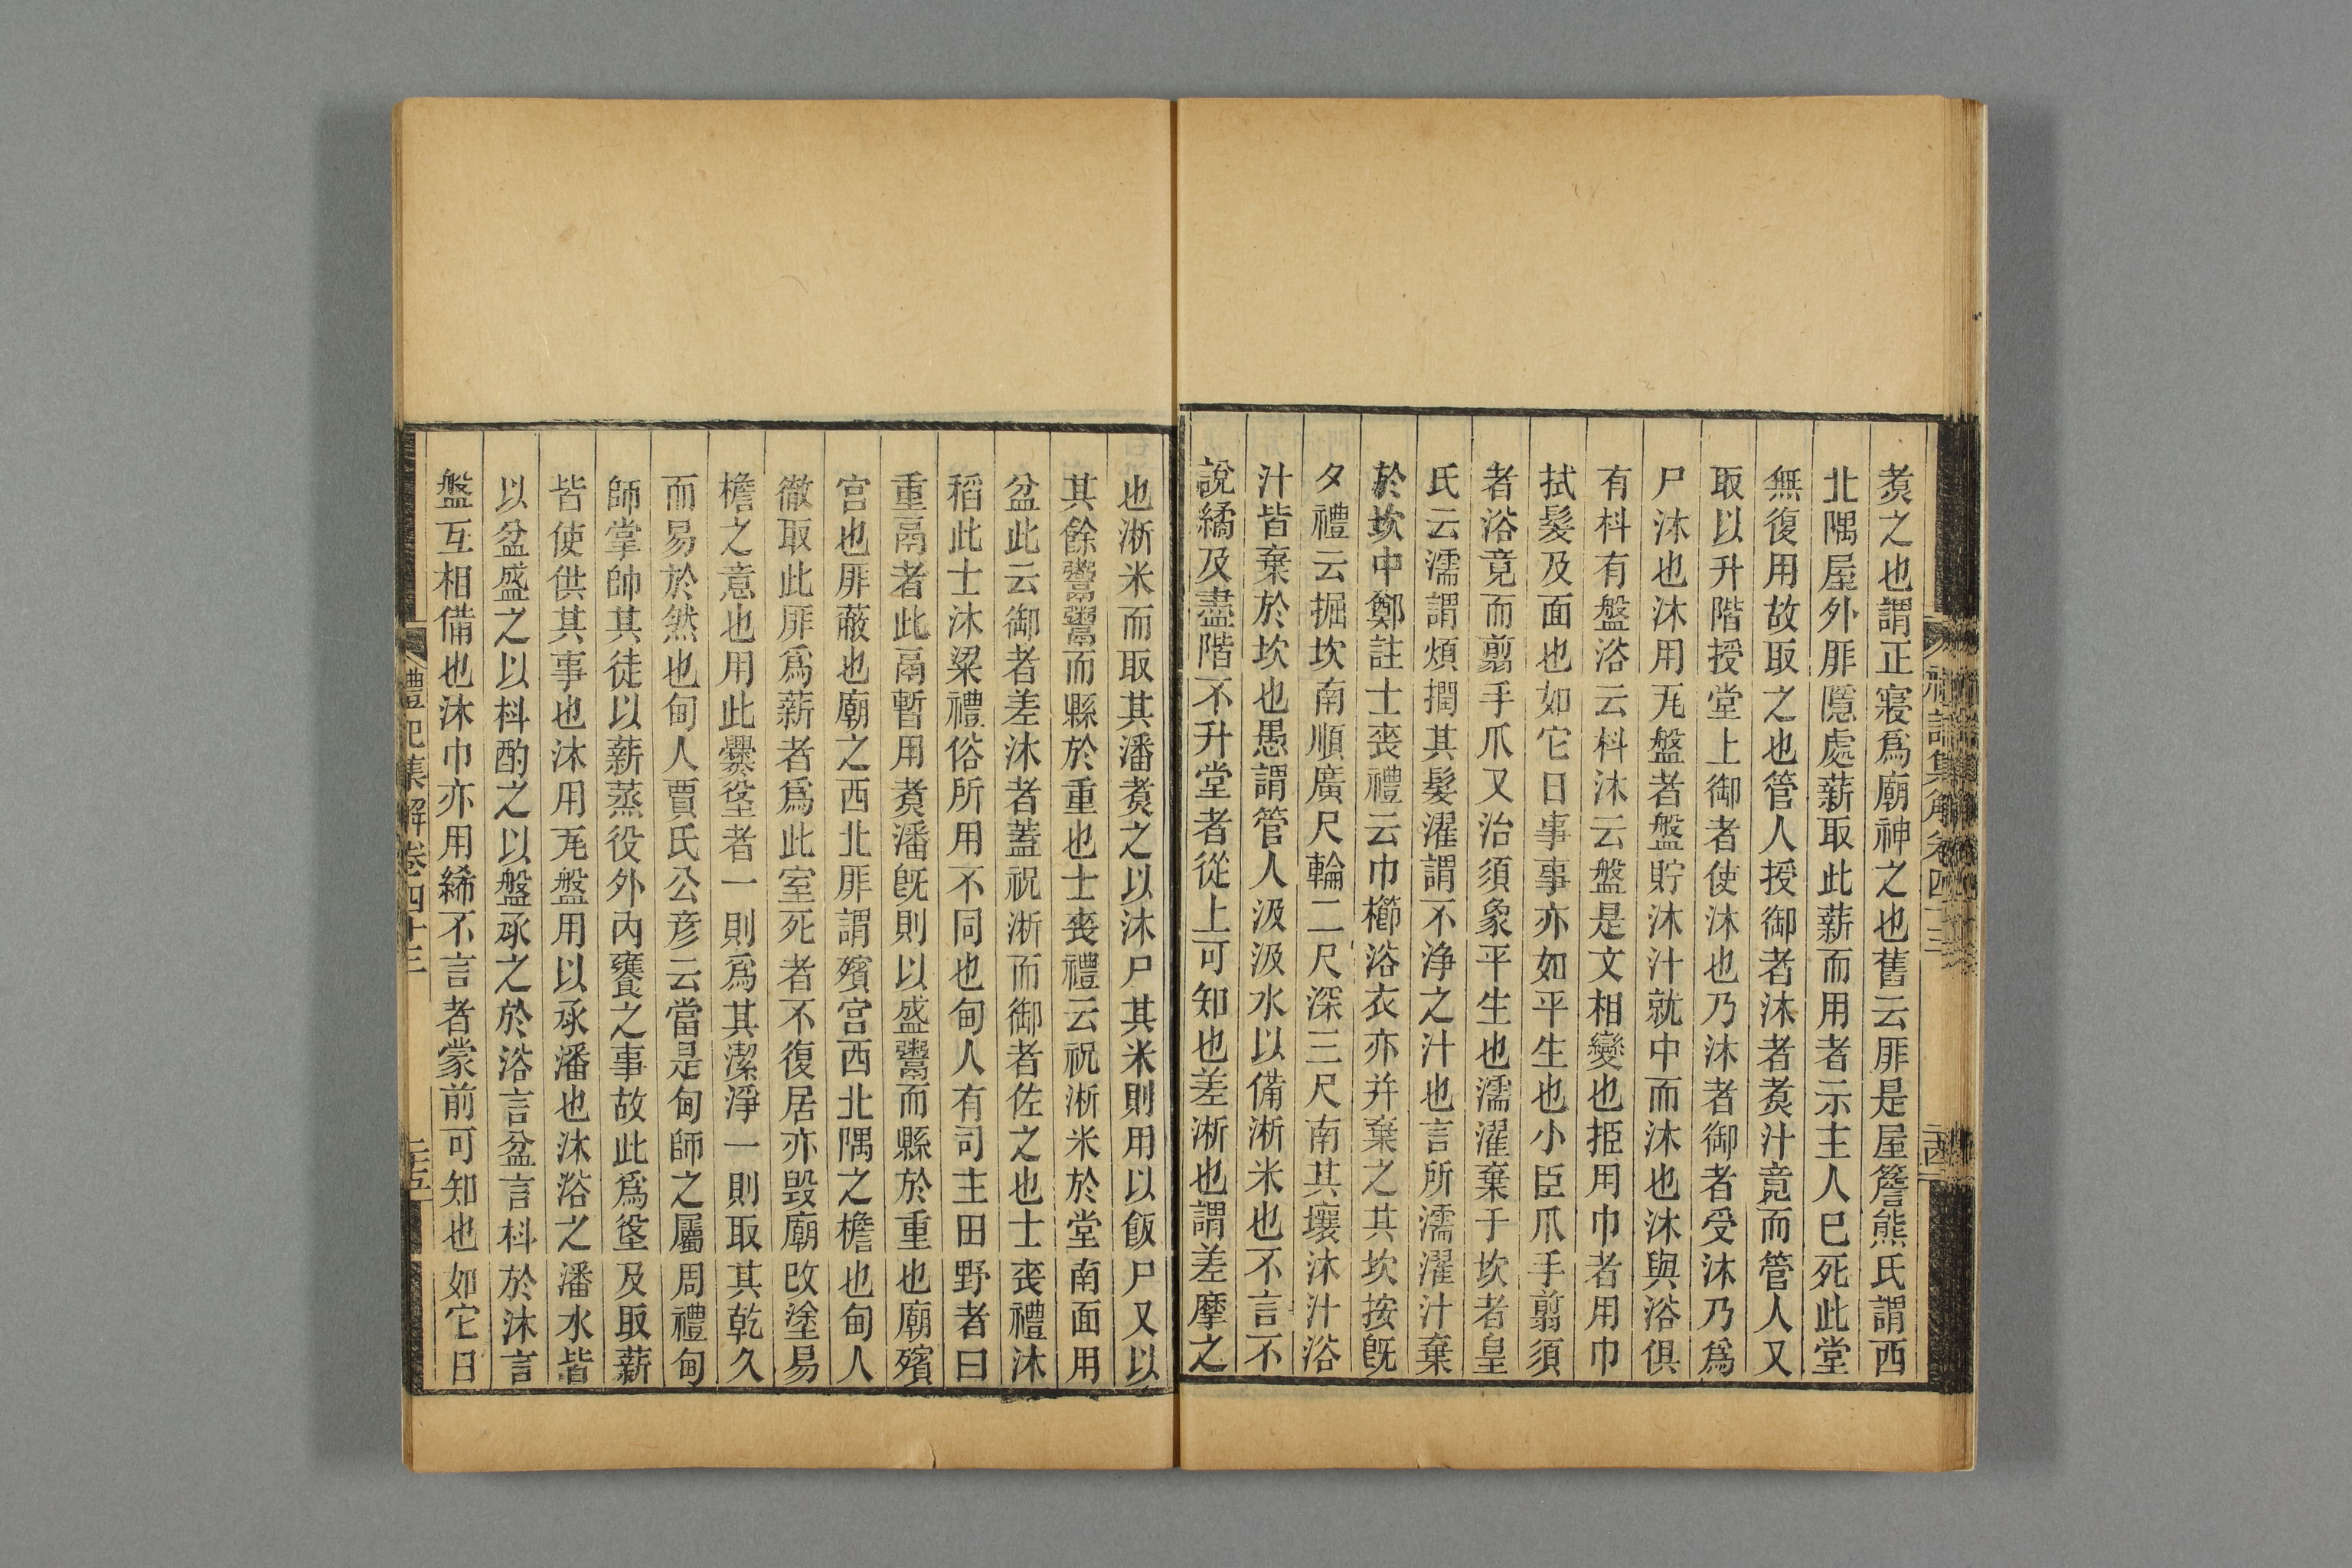 煑之也謂正寢爲廟神之也舊云厞是屋簷熊氏謂西
北隅屋外厞隱處薪取此薪而用者示主人巳死此堂
無復用故取之也管人授御者沐者煑汁竟而管人又
取以升階授堂上御者使沐也乃沐者御者受沐乃爲
尸沐也沐用瓦盤者盤貯沐汁就中而沐也沐與浴俱
有枓有盤浴云枓沐云盤是文相變也挋用巾者用巾
拭髮及面也如它日事事亦如平生也小臣爪手翦須
者浴竟而翦手爪又治須象平生也濡濯棄于坎者皇
氏云濡謂煩撋其髮濯謂不淨之汁也言所濡濯汁棄
於坎中鄭註士喪禮云巾櫛浴衣亦并棄之其坎按旣
夕禮云掘坎南順廣尺輪二尺深三尺南其壤沐汁浴
汁皆棄於坎也愚謂管人汲汲水以備淅米也不言不
說繘及盡階不升堂者從上可知也差淅也謂差摩之
也淅米而取其潘煑之以沐尸其米則用以飯尸又以
其餘鬻鬻而縣於重也士喪禮云祝淅米於堂南面用
盆此云御者差沐者蓋祝淅而御者佐之也士喪禮沐
稻此士沐粱禮俗所用不同也甸人有司主田野者曰
重鬲者此鬲暫用煑潘旣則以盛鬻而縣於重也廟殯
宮也厞蔽也廟之西北厞謂殯宮西北隅之檐也甸人
徹取此厞爲薪者爲此室死者不復居亦毀廟改塗易
檐之意也用此爨垼者一則爲其潔淨一則取其乾久
而易於然也甸人賈氏公彥云當是甸師之屬周禮甸
師掌帥其徒以薪蒸役外內饔之事故此爲垼及取薪
皆使供其事也沐用瓦盤用以承潘也沐浴之潘水皆
以盆盛之以枓酌之以盤承之於浴言盆言枓於沐言
盤互相備也沐巾亦用絺不言者蒙前可知也如它日
禮記集解卷四十三
二十五